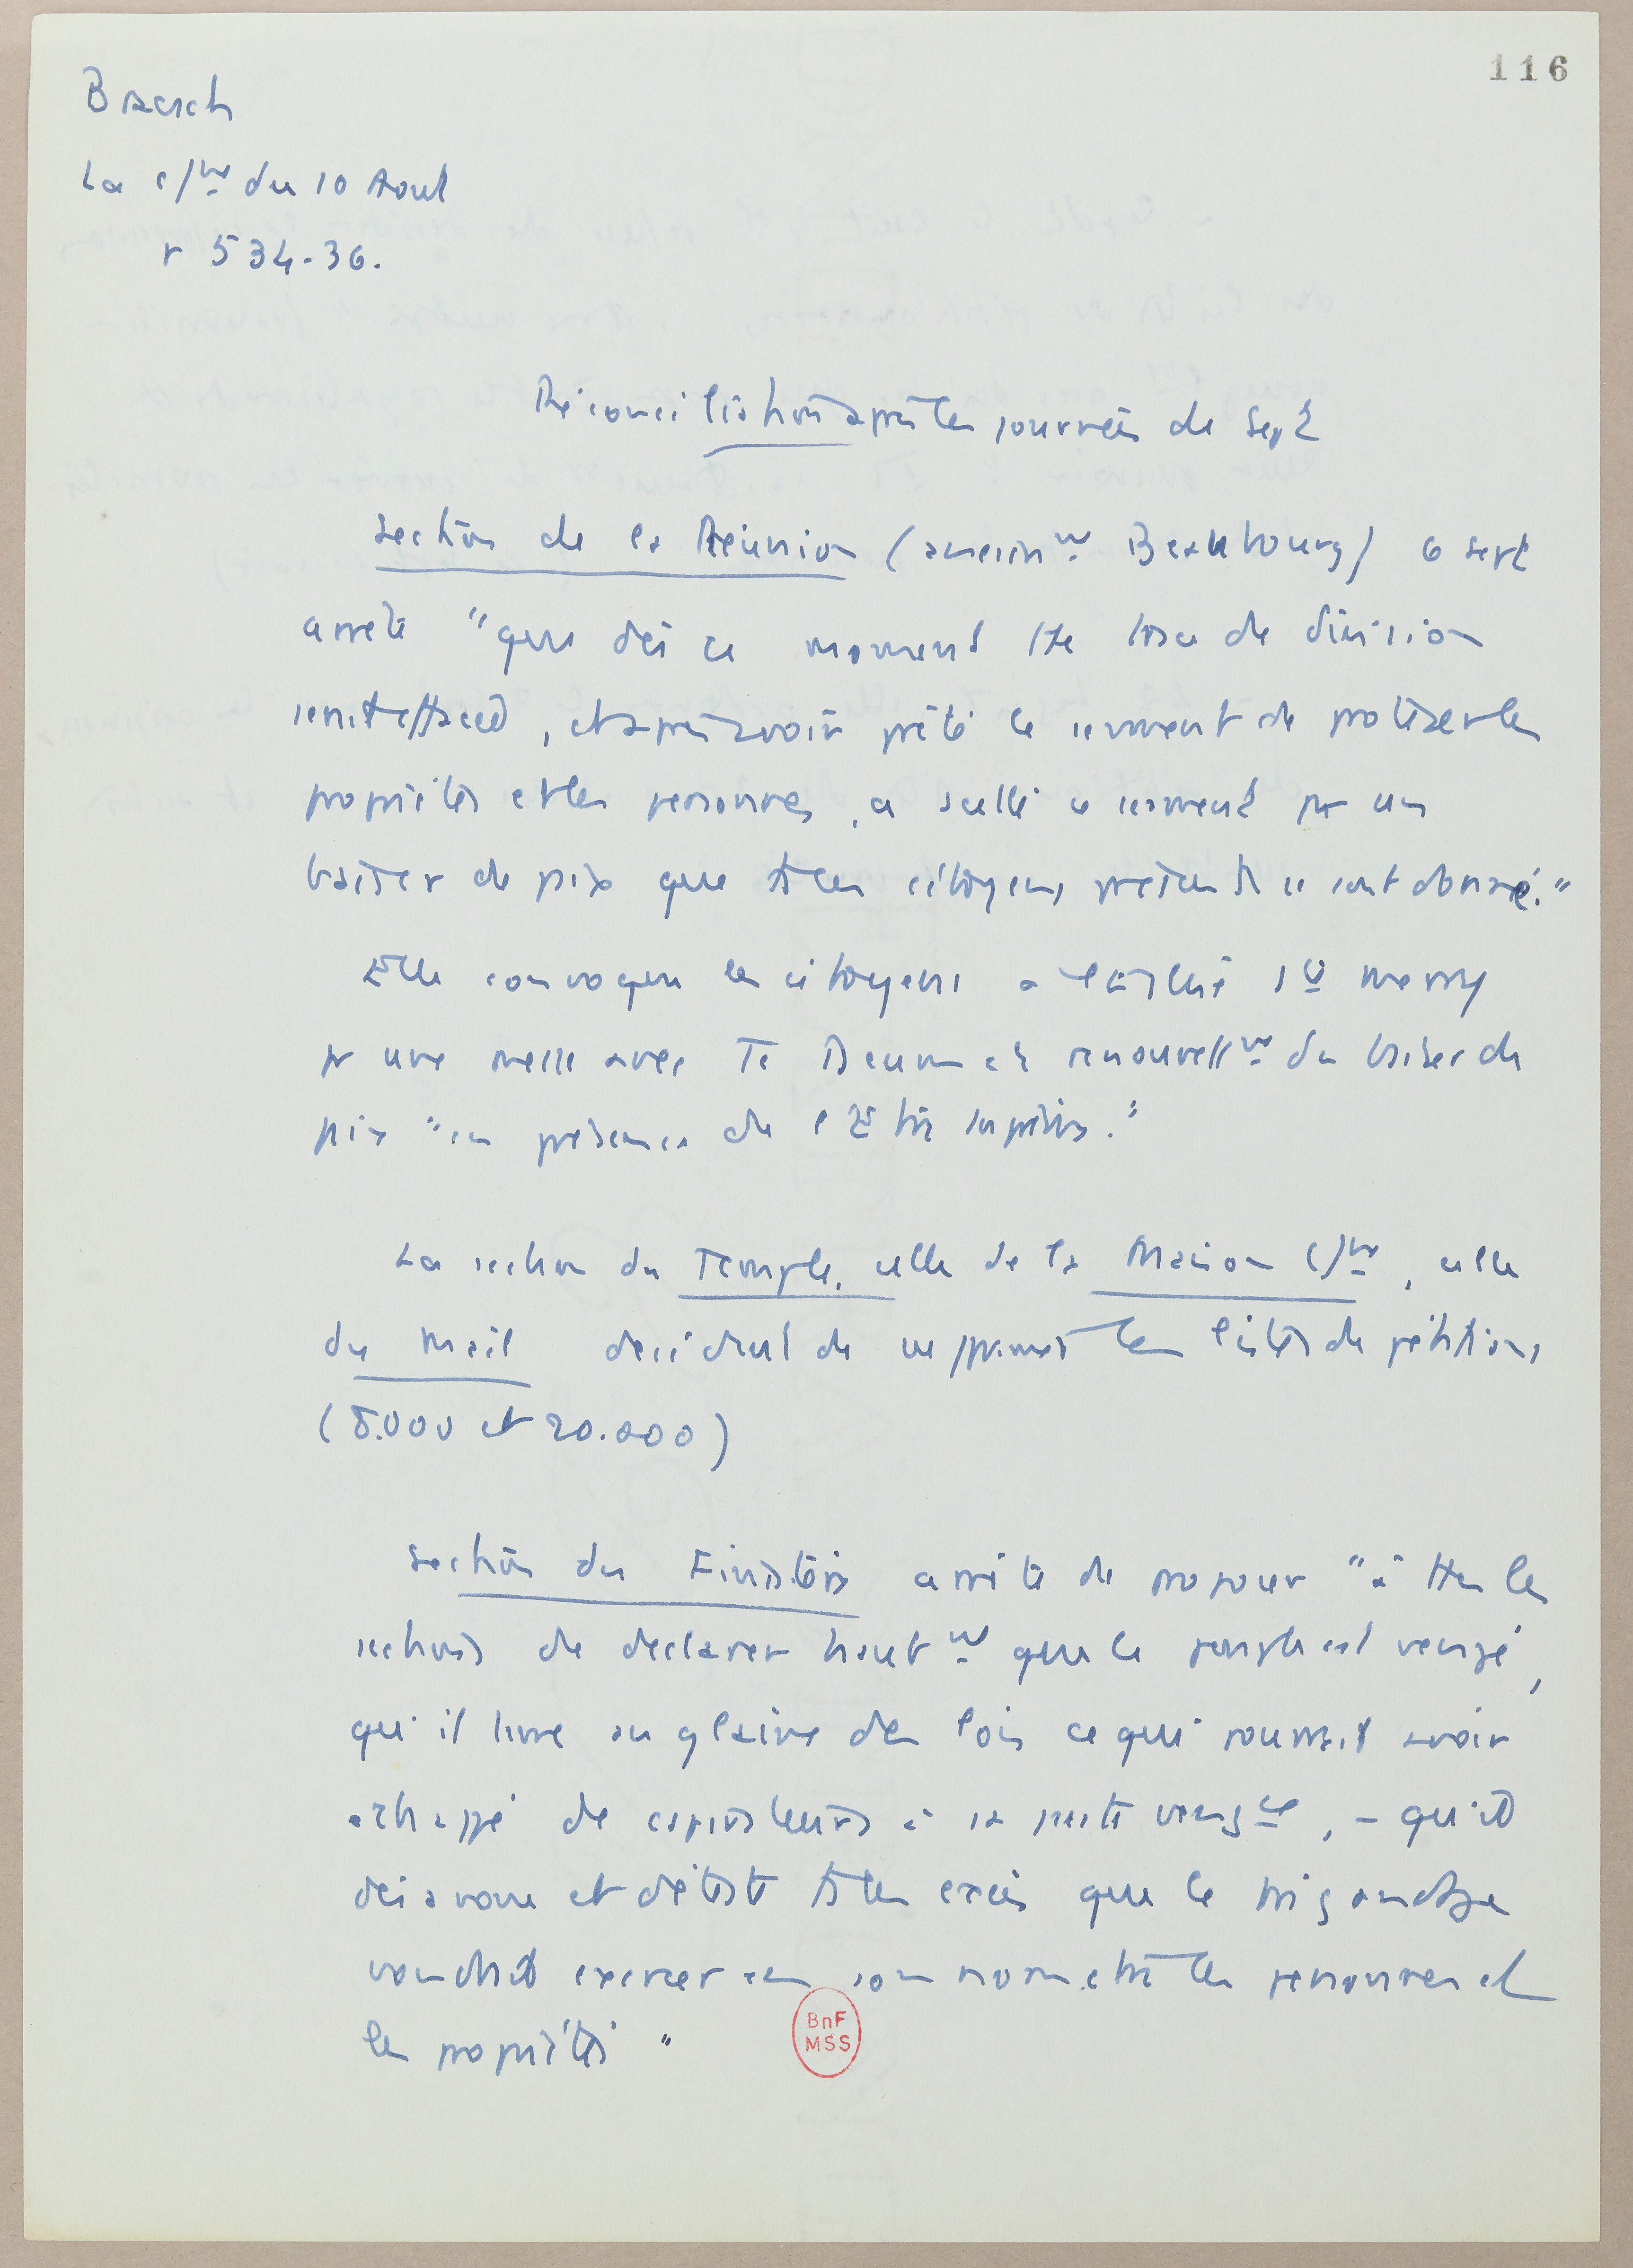 116
Braesch
La c/ne du 10 Aout
p 534-36.
Réconciliation après les journées de Sept
Section de la Réunion (ancienne Beaubourg) 6 sept
arrete "que dès ce moment tte trace de division
serait effacée, et après avoir prêté le serment de protéger les
propriétés et les personnes, a scellé ce serment pr un
baiser de paix que ts les citoyens présents se sont donné."
Elle convoque les citoyens a l'église St Merry
pr une messe avec Te Deum et renouvellnt du baiser de
paix "en présence de l'Etre suprême."
La section du Temple, celle de la Maison C/ne, celle
du Mail décident de supprimer les listes de pétitions
(8.000 et 20.000)
Section du Finistère arrête de proposer "à ttes les
sections de déclarer hautnt que le peuple est vengé,
qu'il livre au glaive des lois ce qui pourrait avoir
échappé de conspirateurs à sa juste vengce, - qu'il
désavoue et déteste ts les excès que le brigandage
voudrait exercer en son nom contre les personnes et
les propriétés"
BnF
MSS